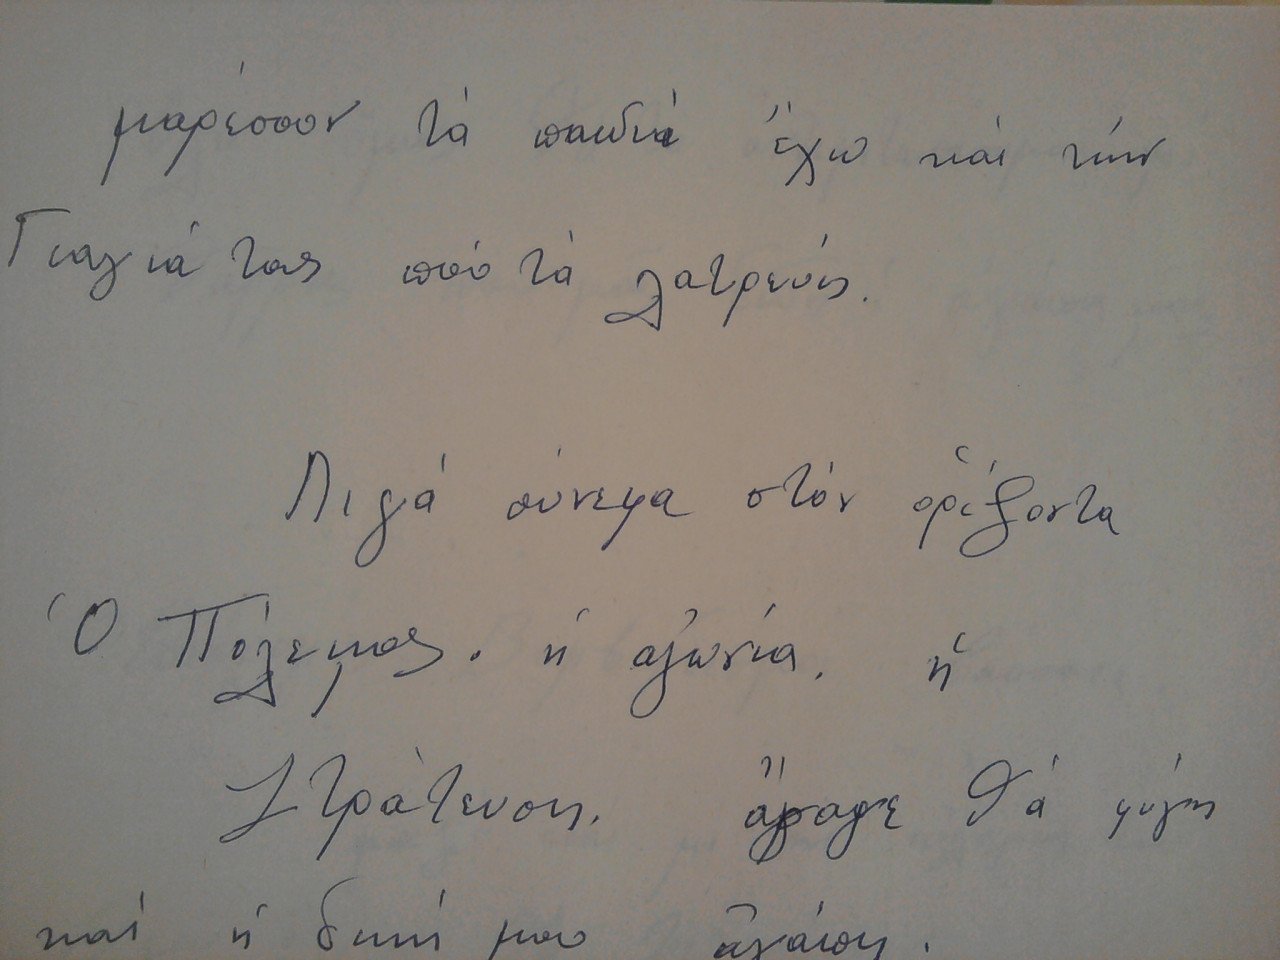 μαρέσουν τὰ παιδιά ἔχω καὶ τήν
Γιαγιά τους πού τὰ λατρεύει.
Λιγά σύνεφα στόν ὁρίζοντα
Ὁ Πόλεμος. ἡ αγωνία. ἡ
Στράτευση. ἄραγε θά φύγη
καί ἡ δική μου ἀγάπη.